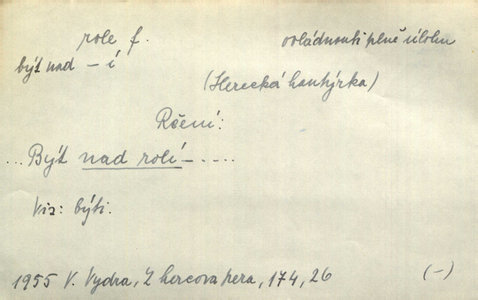 role f. ovládnouti plně úlohu
být nad – í
(Herecká hantýrka)
Rčení:
... Být nad rolí – ....
Viz: býti.
1955 V. Vydra, Z hercova pera, 174, 26 (–)